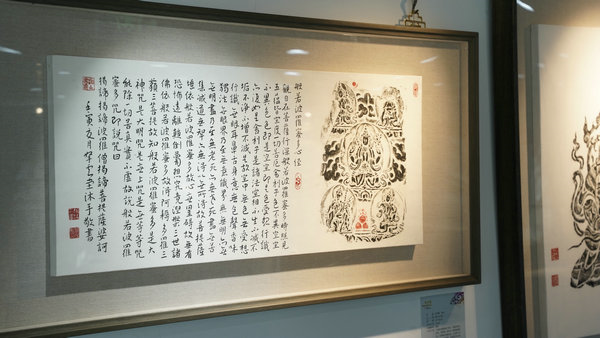 般若波羅蜜多心經
觀自在菩薩行深般若波羅蜜多時照見
五蘊皆空度一切苦厄舍利子色不異空空
不異色色即是空空即是色受想行識
亦復如是舍利子是諸法空相不生不滅不
垢不淨不增不減是故空中無色無受想
行識無眼耳鼻舌身意無色聲香味
觸法無眼界乃至無意識界無無明亦無
無明盡乃至無老死亦無老死盡無苦
集滅道無智亦無得以無所得故菩提薩
埵依般若波羅蜜多故心無罣礙故無有
恐怖遠離顛倒夢想究竟涅槃三世諸
佛依般若波羅蜜多故得阿耨多羅三
藐三菩提故知般若波羅蜜多是大
神咒是大明咒是無上咒是無等等咒
能除一切苦真實不虛故說般若波羅
蜜多咒即說咒曰
揭諦揭諦波羅僧揭諦菩提薩婆訶
壬寅 月 沐手敬書